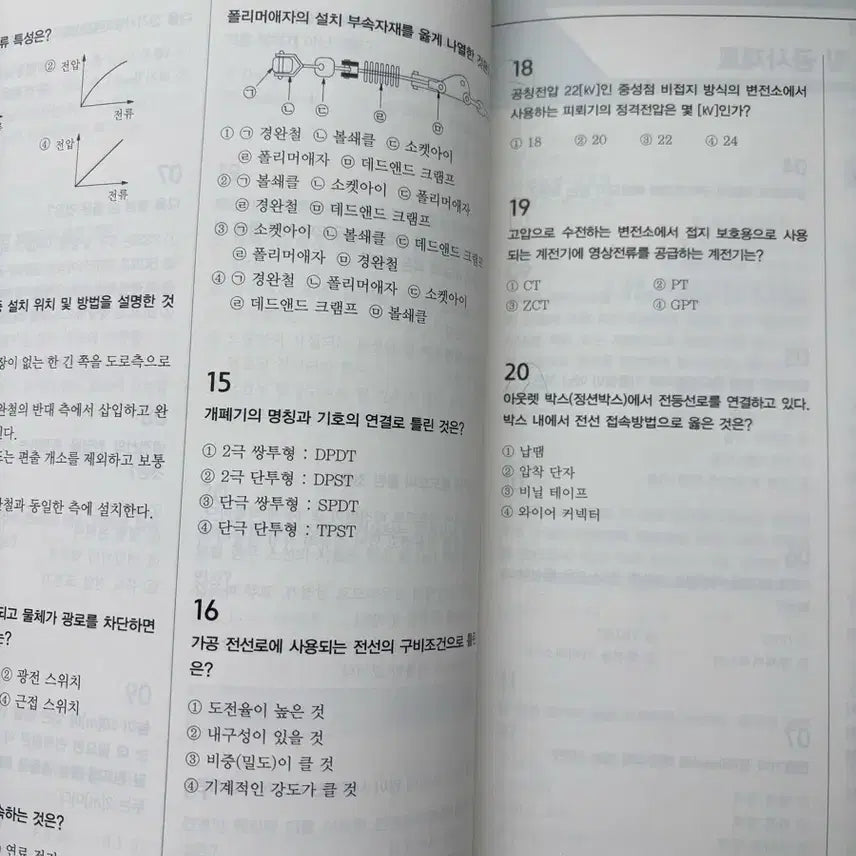 류 특성은?
② 전압
전류
④ 전압
전류
설치 위치 및 방법을 설명한 것
장이 없는 한 긴 쪽을 도로측으로
완철의 반대 측에서 삽입하고 완
된다.
또는 편출 개소를 제외하고 보통
완철과 동일한 측에 설치한다.
되고 물체가 광로를 차단하면
는?
② 광전 스위치
④ 근접 스위치
속하는 것은?
폴리머애자의 설치 부속자재를 옳게 나열한 것은?
㉠
㉡
㉢
㉣
㉤
① ㉠ 경완철 ㉡ 볼쇄클 ㉢ 소켓아이
㉣ 폴리머애자 ㉤ 데드앤드 크램프
② ㉠ 볼쇄클 ㉡ 소켓아이 ㉢ 폴리머애자
㉣ 경완철 ㉤ 데드앤드 크램프
③ ㉠ 소켓아이 ㉡ 볼쇄클 ㉢ 데드앤드 크램프
㉣ 폴리머애자 ㉤ 경완철
④ ㉠ 경완철 ㉡ 폴리머애자 ㉢ 소켓아이
㉣ 데드앤드 크램프 ㉤ 볼쇄클
15
개폐기의 명칭과 기호의 연결로 틀린 것은?
① 2극 쌍투형 : DPDT
② 2극 단투형 : DPST
③ 단극 쌍투형 : SPDT
④ 단극 단투형 : TPST
16
가공 전선로에 사용되는 전선의 구비조건으로 틀린
은?
① 도전율이 높은 것
② 내구성이 있을 것
③ 비중(밀도)이 클 것
④ 기계적인 강도가 클 것
18
공칭전압 22[kV]인 중성점 비접지 방식의 변전소에서
사용하는 피뢰기의 정격전압은 몇 [kV]인가?
① 18 ② 20 ③ 22 ④ 24
19
고압으로 수전하는 변전소에서 접지 보호용으로 사용
되는 계전기에 영상전류를 공급하는 계전기는?
① CT ② PT
③ ZCT ④ GPT
20
아웃렛 박스(정션박스)에서 전등선로를 연결하고 있다.
박스 내에서 전선 접속방법으로 옳은 것은?
① 납땜
② 압착 단자
③ 비닐 테이프
④ 와이어 커넥터